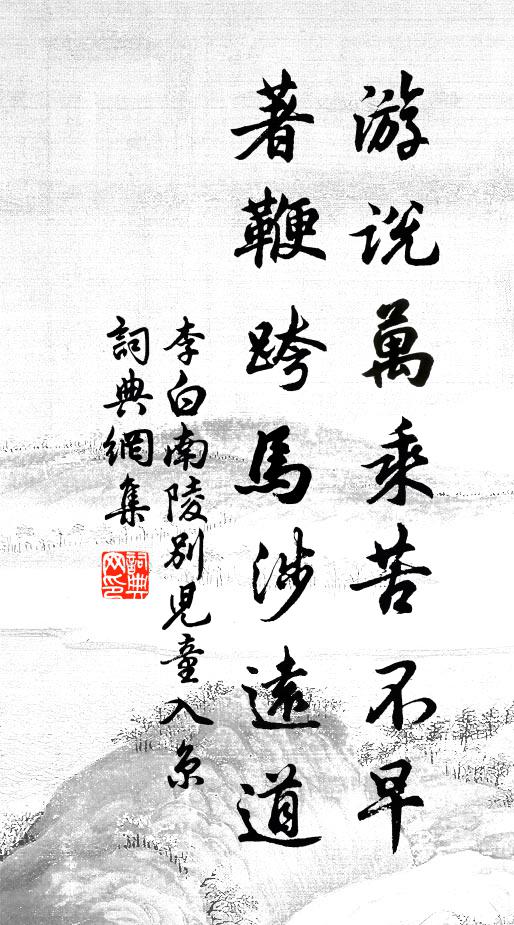 游說萬乘苦不早
著鞭跨馬涉遠道
李白南陵別兒童入京
詞典網集
詞典網印